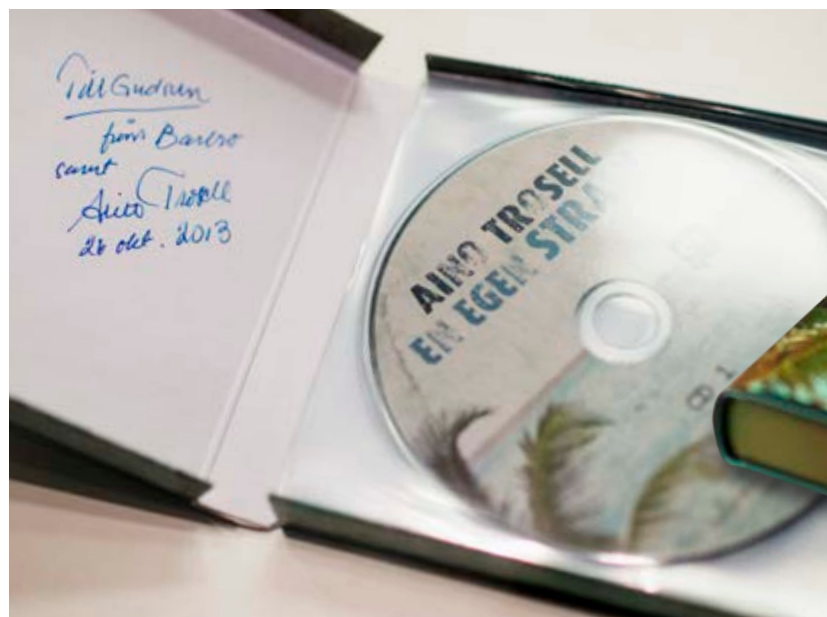 Till Gudrun
från Barbro
samt
Aino Trosell
26 okt. 2013
AINO TROSELL
EN EGEN STRA
CD 1